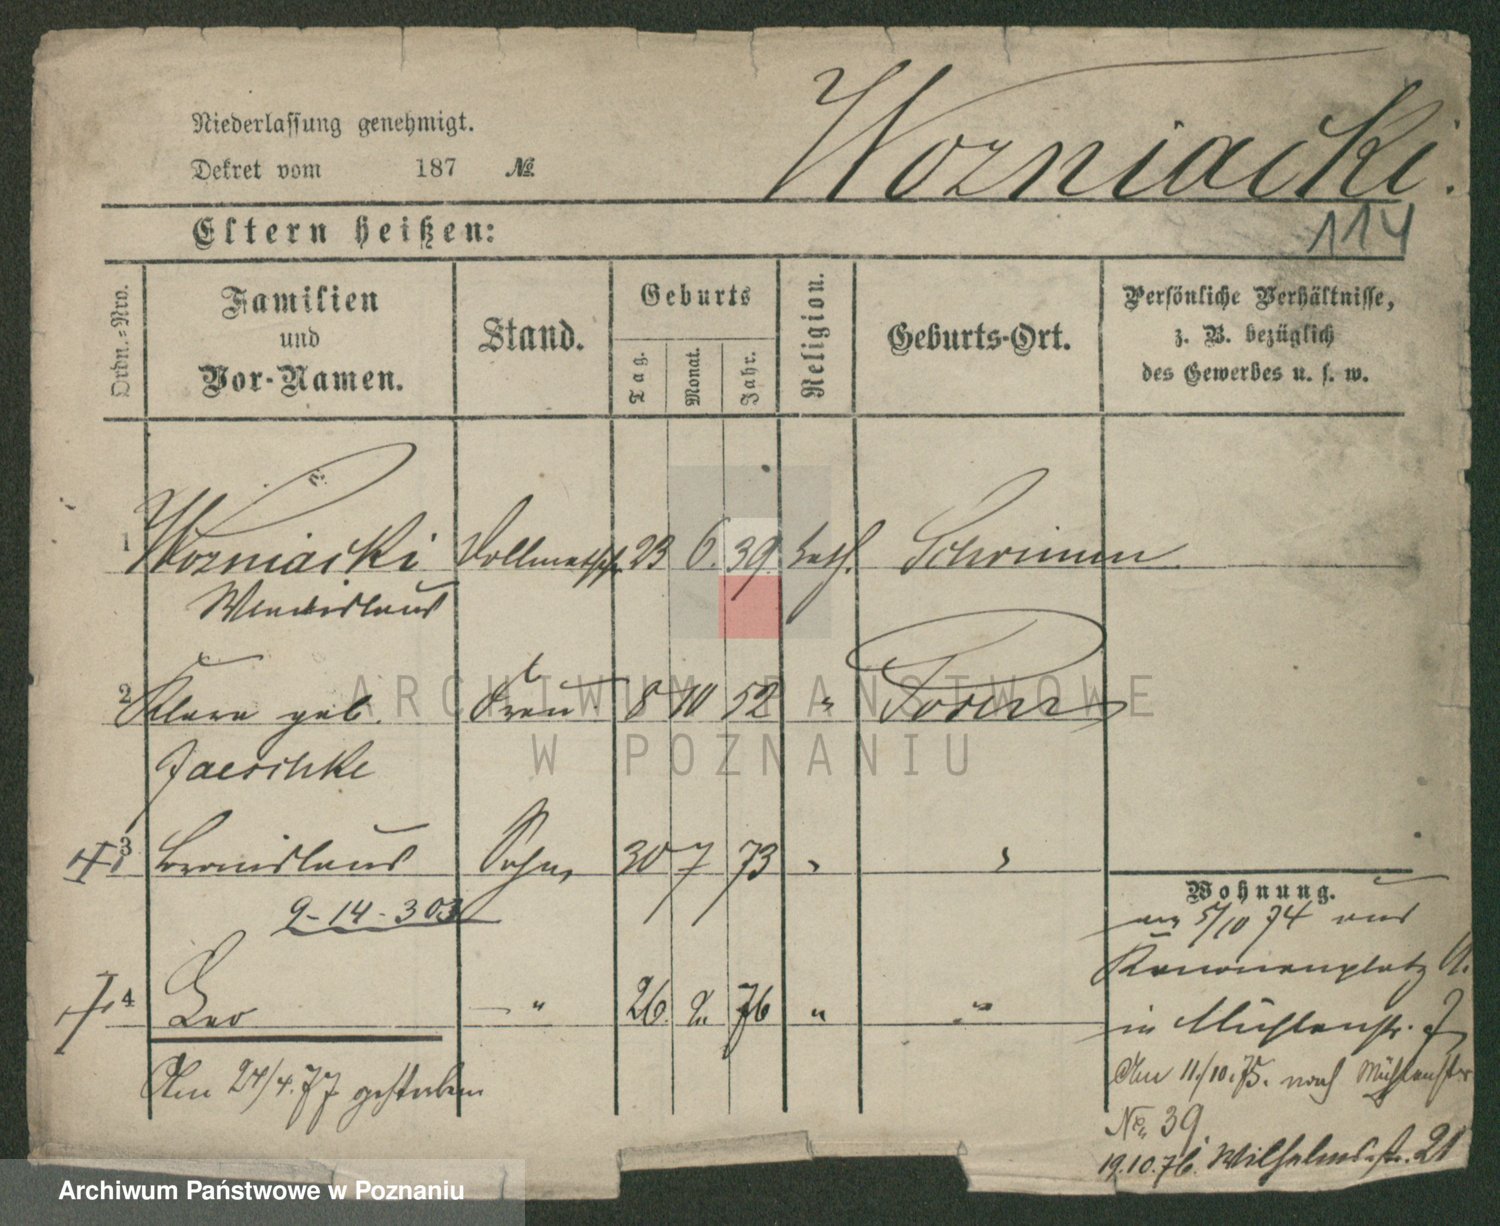 Niederlassung genehmigt.
Dekret vom 187 №
Wozniacki.
114
Eltern heißen:
Ordn.=Nro.
Familien
und
Vor-Namen.
Stand.
Geburts
Tag.
Monat.
Jahr.
Religion.
Geburts-Ort.
Persönliche Verhältnisse,
z. B. bezüglich
des Gewerbes u. s. w.
1 Wozniacki 23 6. 39. kath. Schrimm
2 Klara geb. Frau 8 10 52 " Posen
Jaeschke
3 Bronislaus Sohn 30 7 73 " "
9-14-303
4 Leo — " 26. 2. 76 " "
Am 24/4.77 gestorben
Wohnung.
5/10 74 aus
Kanonenplatz
in Mühlenstr. 7
Am 11./10.75. nach Mühlenstr
No. 39
19.10.76. Wilhelmsstr. 21
ARCHIWUM PAŃSTWOWE
W POZNANIU
Archiwum Państwowe w Poznaniu